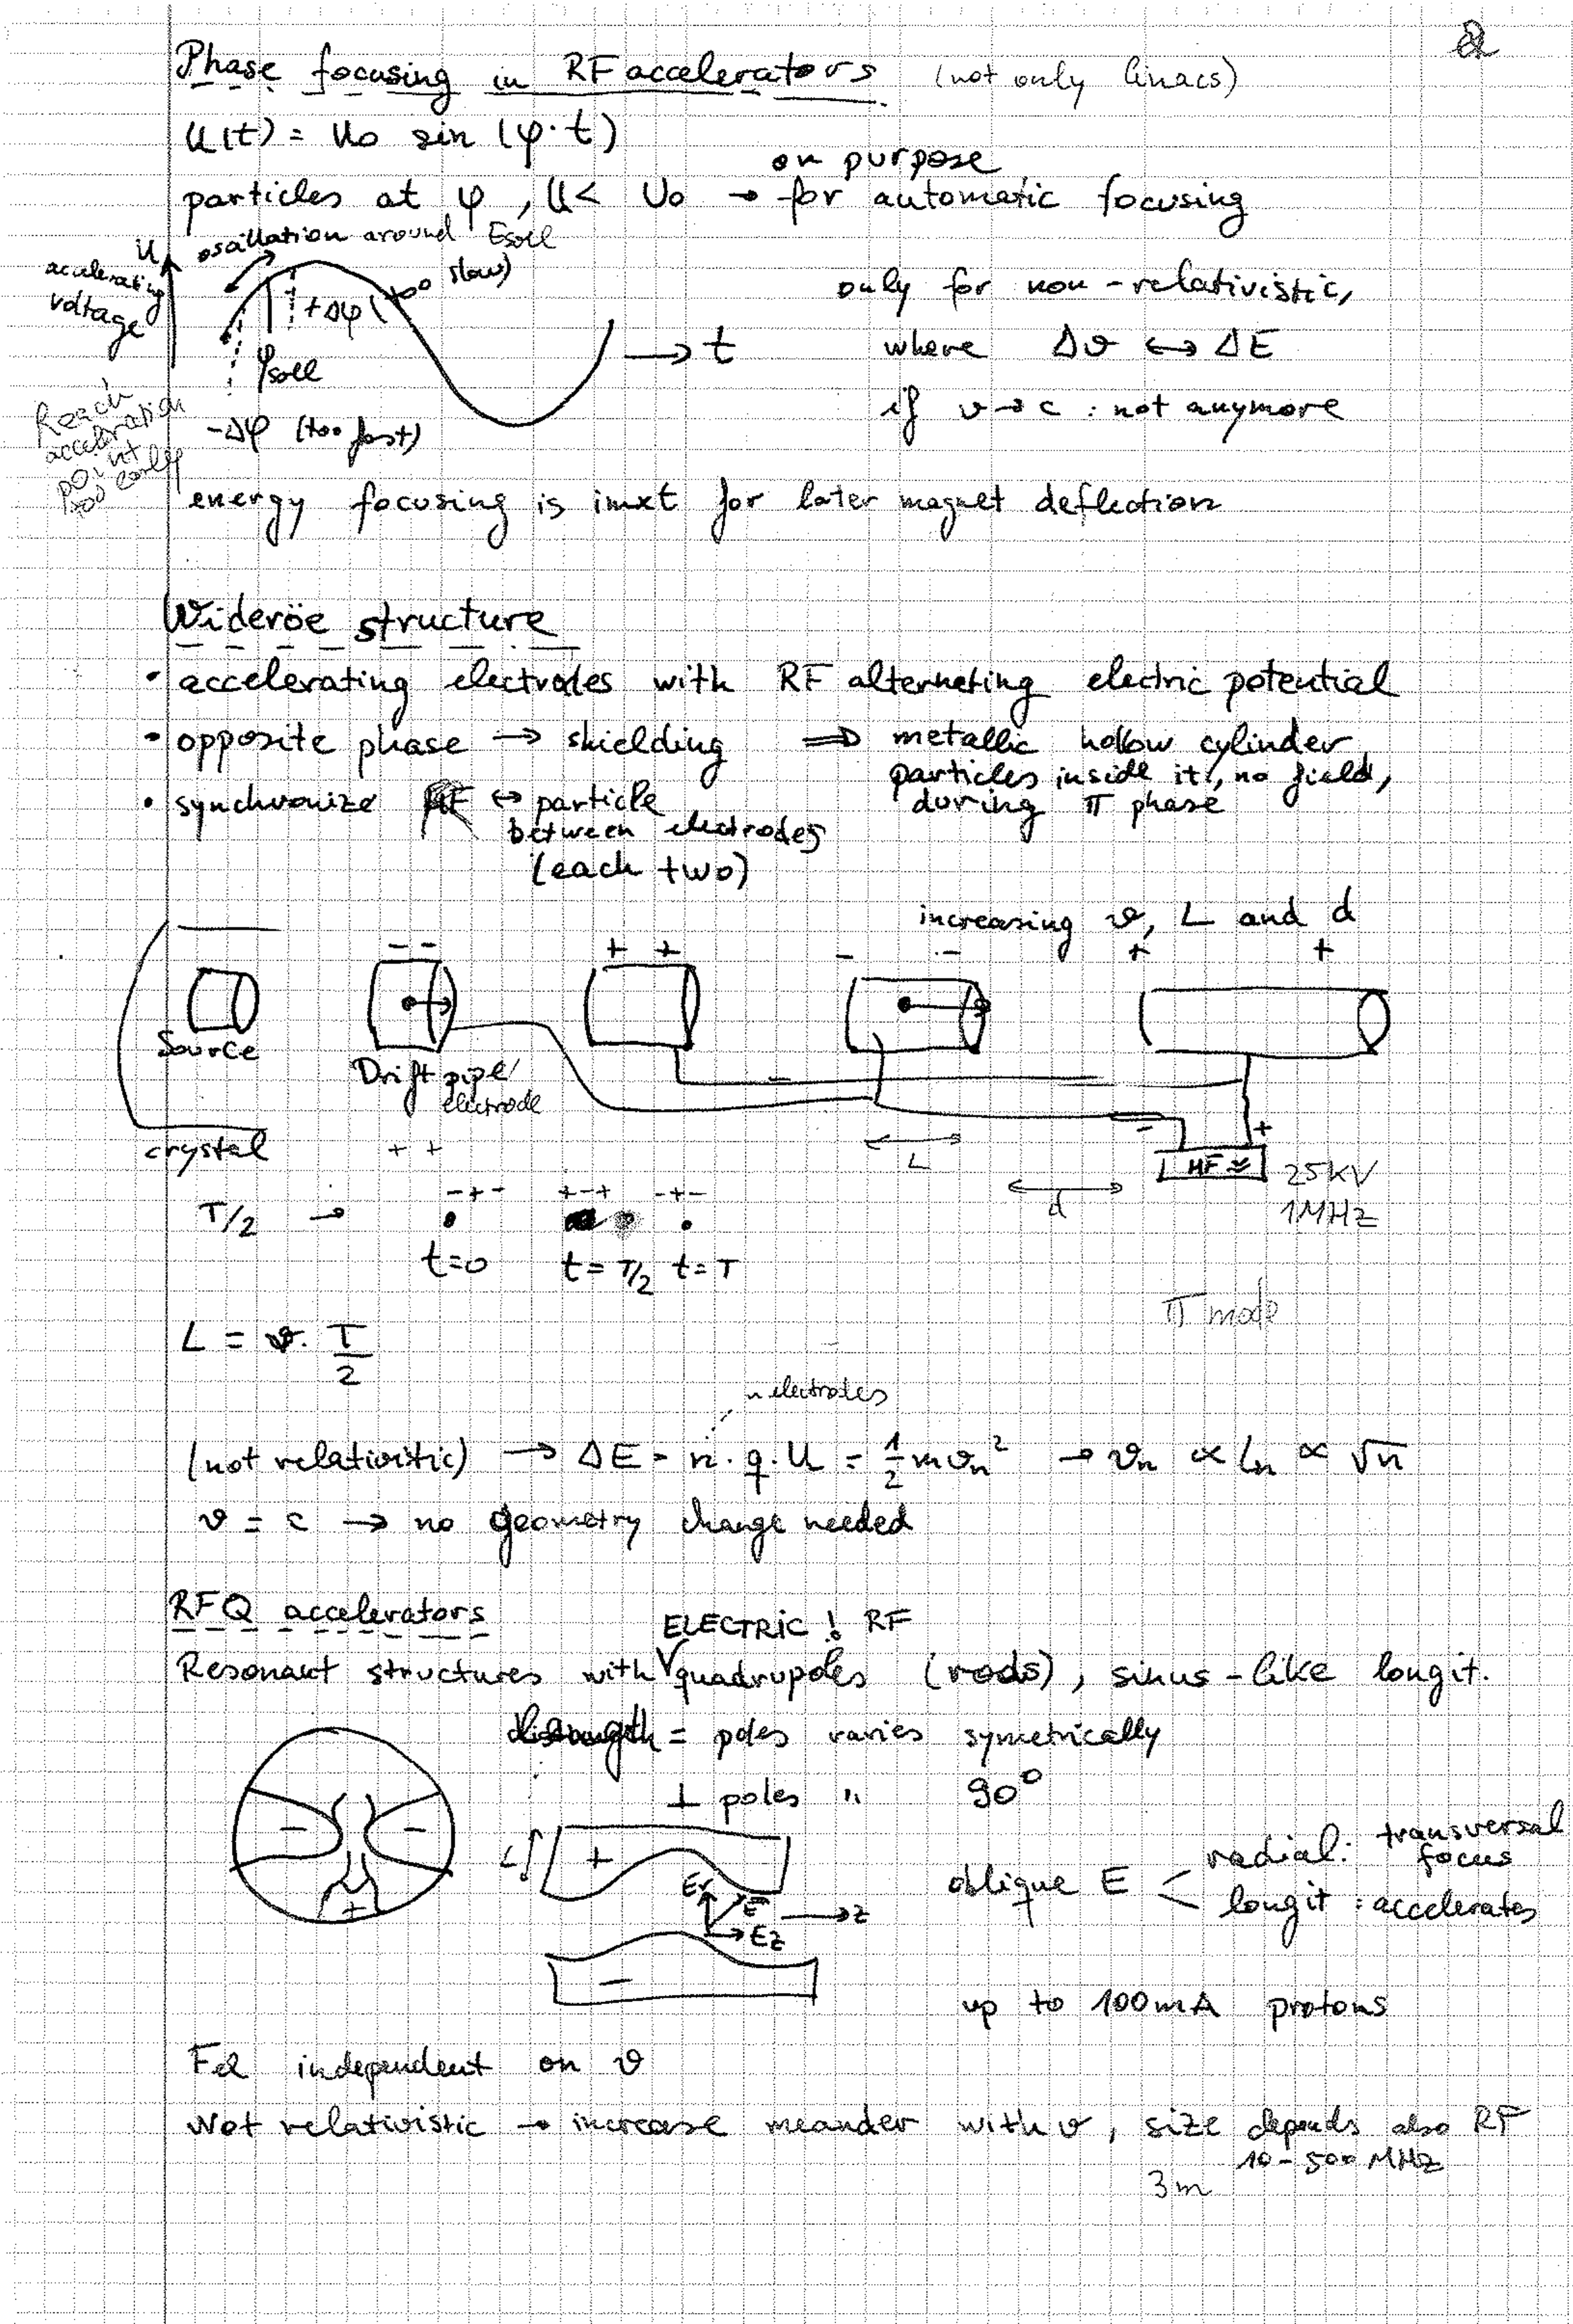 2
Phase focusing in RF accelerators (not only linacs)
U(t) = U₀ sin (φ·t)
on purpose
particles at φ, U < U₀ → for automatic focusing
oscillation around Esoll
U
accelerating
voltage
+Δφ (too slow)
φsoll
→ t
-Δφ (too fast)
Reach
acceleration
point
too early
only for non-relativistic,
where Δv ↔ ΔE
if v→c : not anymore
energy focusing is imxt for later magnet deflection
Wideröe structure
• accelerating electrodes with RF alternating electric potential
• opposite phase → shielding ⇒ metallic hollow cylinder,
particles inside it, no field,
during π phase
• synchronize RF ↔ particle
between electrodes
(each two)
increasing v, L and d
- - + + - - + +
Source
Drift pipe/
electrode
crystal
+ +
L
d
- +
HF ≈ 25KV
1MHz
T/2 →
-+- +-+ -+-
t=0 t=T/2 t=T
π mode
L = v · T/2
n electrodes
(not relativistic) → ΔE = n·q·U = ½mvₙ² → vₙ ∝ Lₙ ∝ √n
v = c → no geometry change needed
RFQ accelerators
ELECTRIC! RF
Resonant structures with quadrupoles (rods), sinus-like longit.
= poles varies symetrically
⊥ poles " 90°
- -
+
+
Er
E
Ez
→z
-
oblique E < radial: transversal
focus
longit: accelerates
up to 100mA protons
Fel independent on v
Not relativistic → increase meander with v, size depends also RF
10-500 MHz
3m